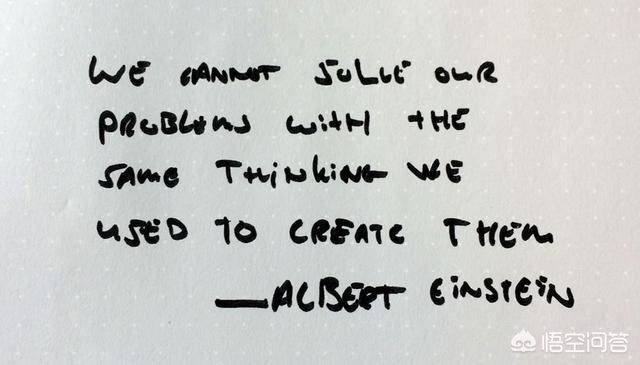 WE CANNOT SOLVE OUR
PROBLEMS WITH THE
SAME THINKING WE
USED TO CREATE THEM
—ALBERT EINSTEIN
悟空问答